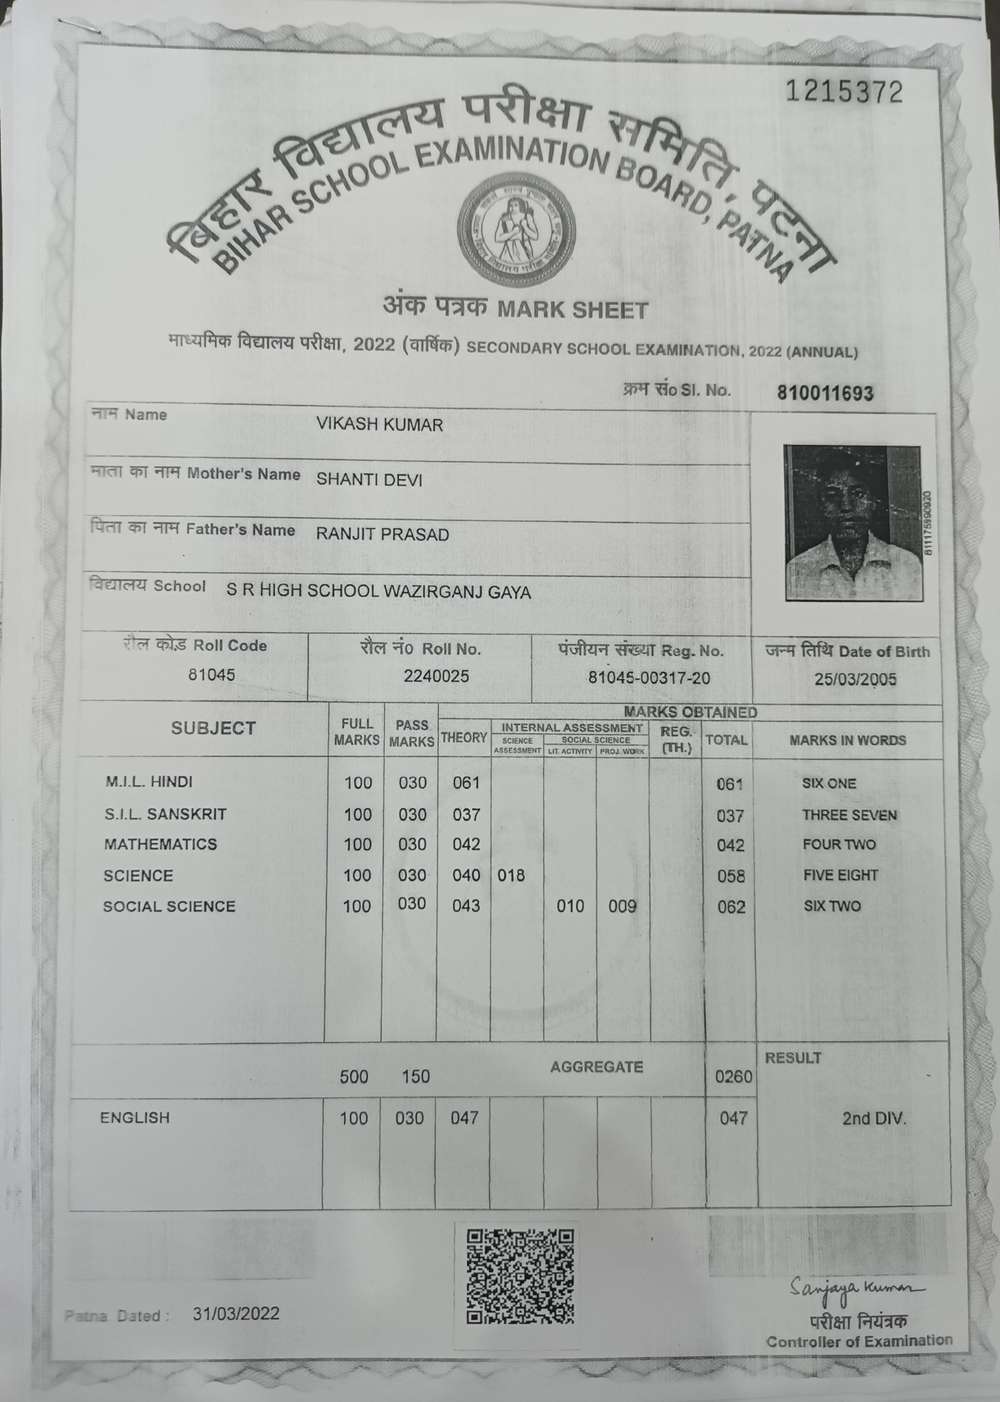 1215372
बिहार विद्यालय परीक्षा समिति, पटना
BIHAR SCHOOL EXAMINATION BOARD, PATNA
अंक पत्रक MARK SHEET
माध्यमिक विद्यालय परीक्षा, 2022 (वार्षिक) SECONDARY SCHOOL EXAMINATION, 2022 (ANNUAL)
क्रम सं० Sl. No. 810011693
नाम Name VIKASH KUMAR
माता का नाम Mother's Name SHANTI DEVI
पिता का नाम Father's Name RANJIT PRASAD
विद्यालय School S R HIGH SCHOOL WAZIRGANJ GAYA
811175990920
रौल कोड़ Roll Code रौल नं० Roll No. पंजीयन संख्या Reg. No. जन्म तिथि Date of Birth
81045 2240025 81045-00317-20 25/03/2005
SUBJECT FULL MARKS PASS MARKS MARKS OBTAINED
THEORY INTERNAL ASSESSMENT REG. (TH.) TOTAL MARKS IN WORDS
SCIENCE ASSESSMENT SOCIAL SCIENCE
LIT. ACTIVITY PROJ. WORK
M.I.L. HINDI 100 030 061 061 SIX ONE
S.I.L. SANSKRIT 100 030 037 037 THREE SEVEN
MATHEMATICS 100 030 042 042 FOUR TWO
SCIENCE 100 030 040 018 058 FIVE EIGHT
SOCIAL SCIENCE 100 030 043 010 009 062 SIX TWO
500 150 AGGREGATE 0260 RESULT
ENGLISH 100 030 047 047 2nd DIV.
Patna Dated : 31/03/2022
Sanjaya Kumar
परीक्षा नियंत्रक
Controller of Examination